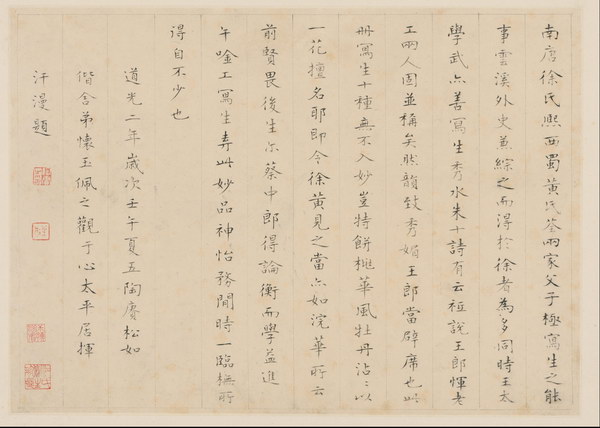 南唐徐氏熙西蜀黃氏筌兩家父子極寫生之能
事雲溪外史兼綜之而得於徐者為多同時王太
學武亦善寫生秀水朱十詩有云祗說王郎惲老
工兩人固並稱矣然韻致秀媚王郎當辟席也此
冊寫生十種無不入妙豈特餅桃華風牡丹沾沾以
一花擅名耶即令徐黃見之當亦如浣華所云
前賢畏後生尔蔡中郎得論衡而學益進
午唫工寫生壽此妙品神怡務閒時一臨橅所
得自不少也
道光二年歲次壬午夏五陶賡松如
偕舍弟懷玉佩之觀于心太平居揮
汗漫題